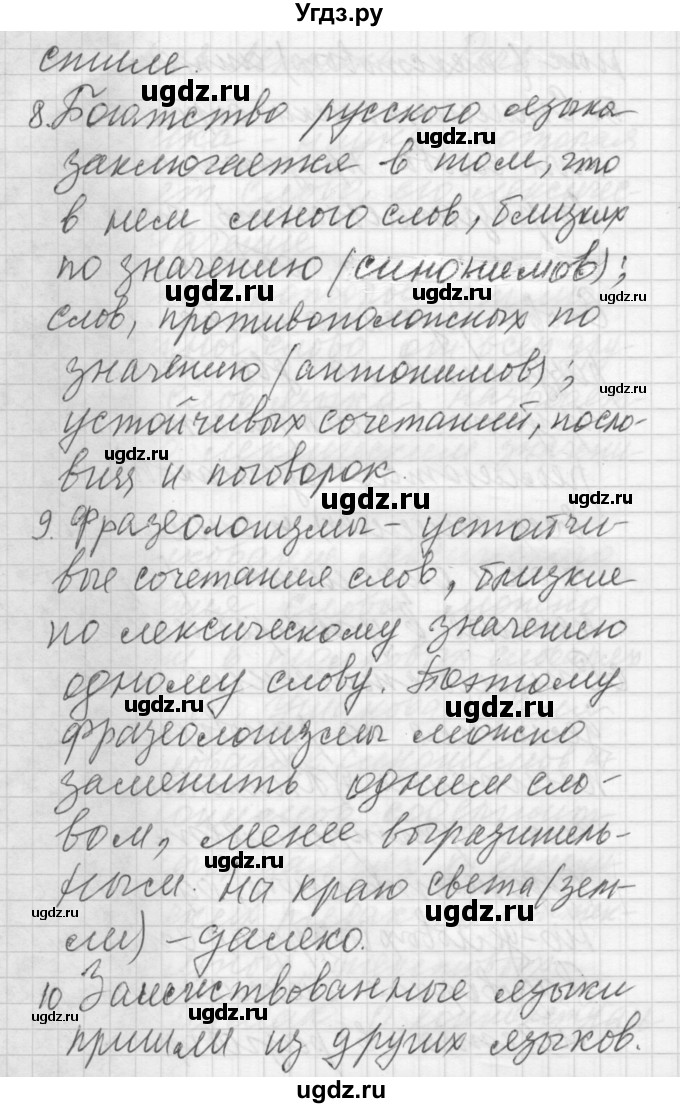 Угдз.ру
стиле.
ugdz.ru
8. Богатство русского языка
ugdz.ru
заключается в том, что
в нем много слов, близких
по значению (синонимов);
ugdz.ru ugdz.ru ugdz.ru
слов, противоположных по
значению (антонимов);
ugdz.ru
устойчивых сочетаний, посло-
ugdz.ru
виц и поговорок.
ugdz.ru ugdz.ru
9. Фразеологизмы – устойчи-
вые сочетания слов, близкие
по лексическому значению
одному слову. Поэтому
ugdz.ru ugdz.ru
фразеологизмы можно
заменить одним сло-
вом, менее выразитель-
ugdz.ru
ным. На краю света (зем-
ugdz.ru ugdz.ru
ли) – далеко.
10 Заимствованные языки
ugdz.ru ugdz.ru
пришли из других языков.
ugdz.ru